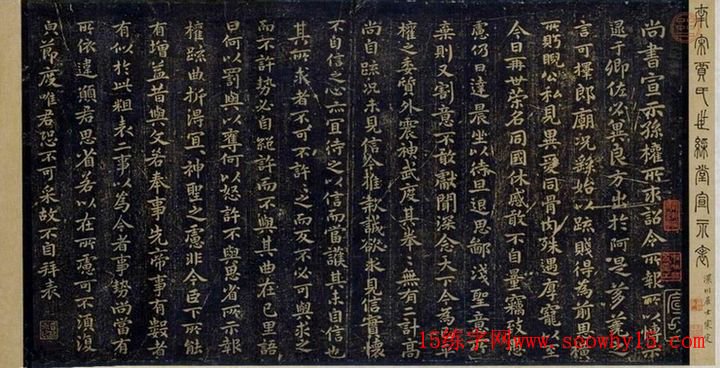 南宋賈氏世綵堂宣示表
尚書宣示孫權所求詔令所報所以博示
逮于卿佐必冀良方出於阿是芻蕘之
言可擇郎廟況繇始以疏賤得為前恩橫
所盼睨公私見異愛同骨肉殊遇厚寵以至
今日再世榮名同國休慼敢不自量竊致愚
慮仍日達晨坐以待旦退思鄙淺聖意所
棄則又割意不敢獻聞深念天下今為已平
權之委質外震神武度其拳拳無有二計高
尚自疏況未見信今推款誠欲求見信實懷
不自信之心亦宜待之以信而當護其未自信也
其所求者不可不許許之而反不必可與求之
而不許勢必自絕許而不與其曲在己里語
曰何以罰與以奪何以怒許不與思省所示報
權疏曲折得宜宜神聖之慮非今臣下所能
有增益昔與文若奉事先帝事有數者
有似於此粗表二事以為今者事勢尚當有
所依違願君思省若以在所慮可不須復
皃節度唯君恐不可采故不自拜表
15练字网www.snowhy15.com